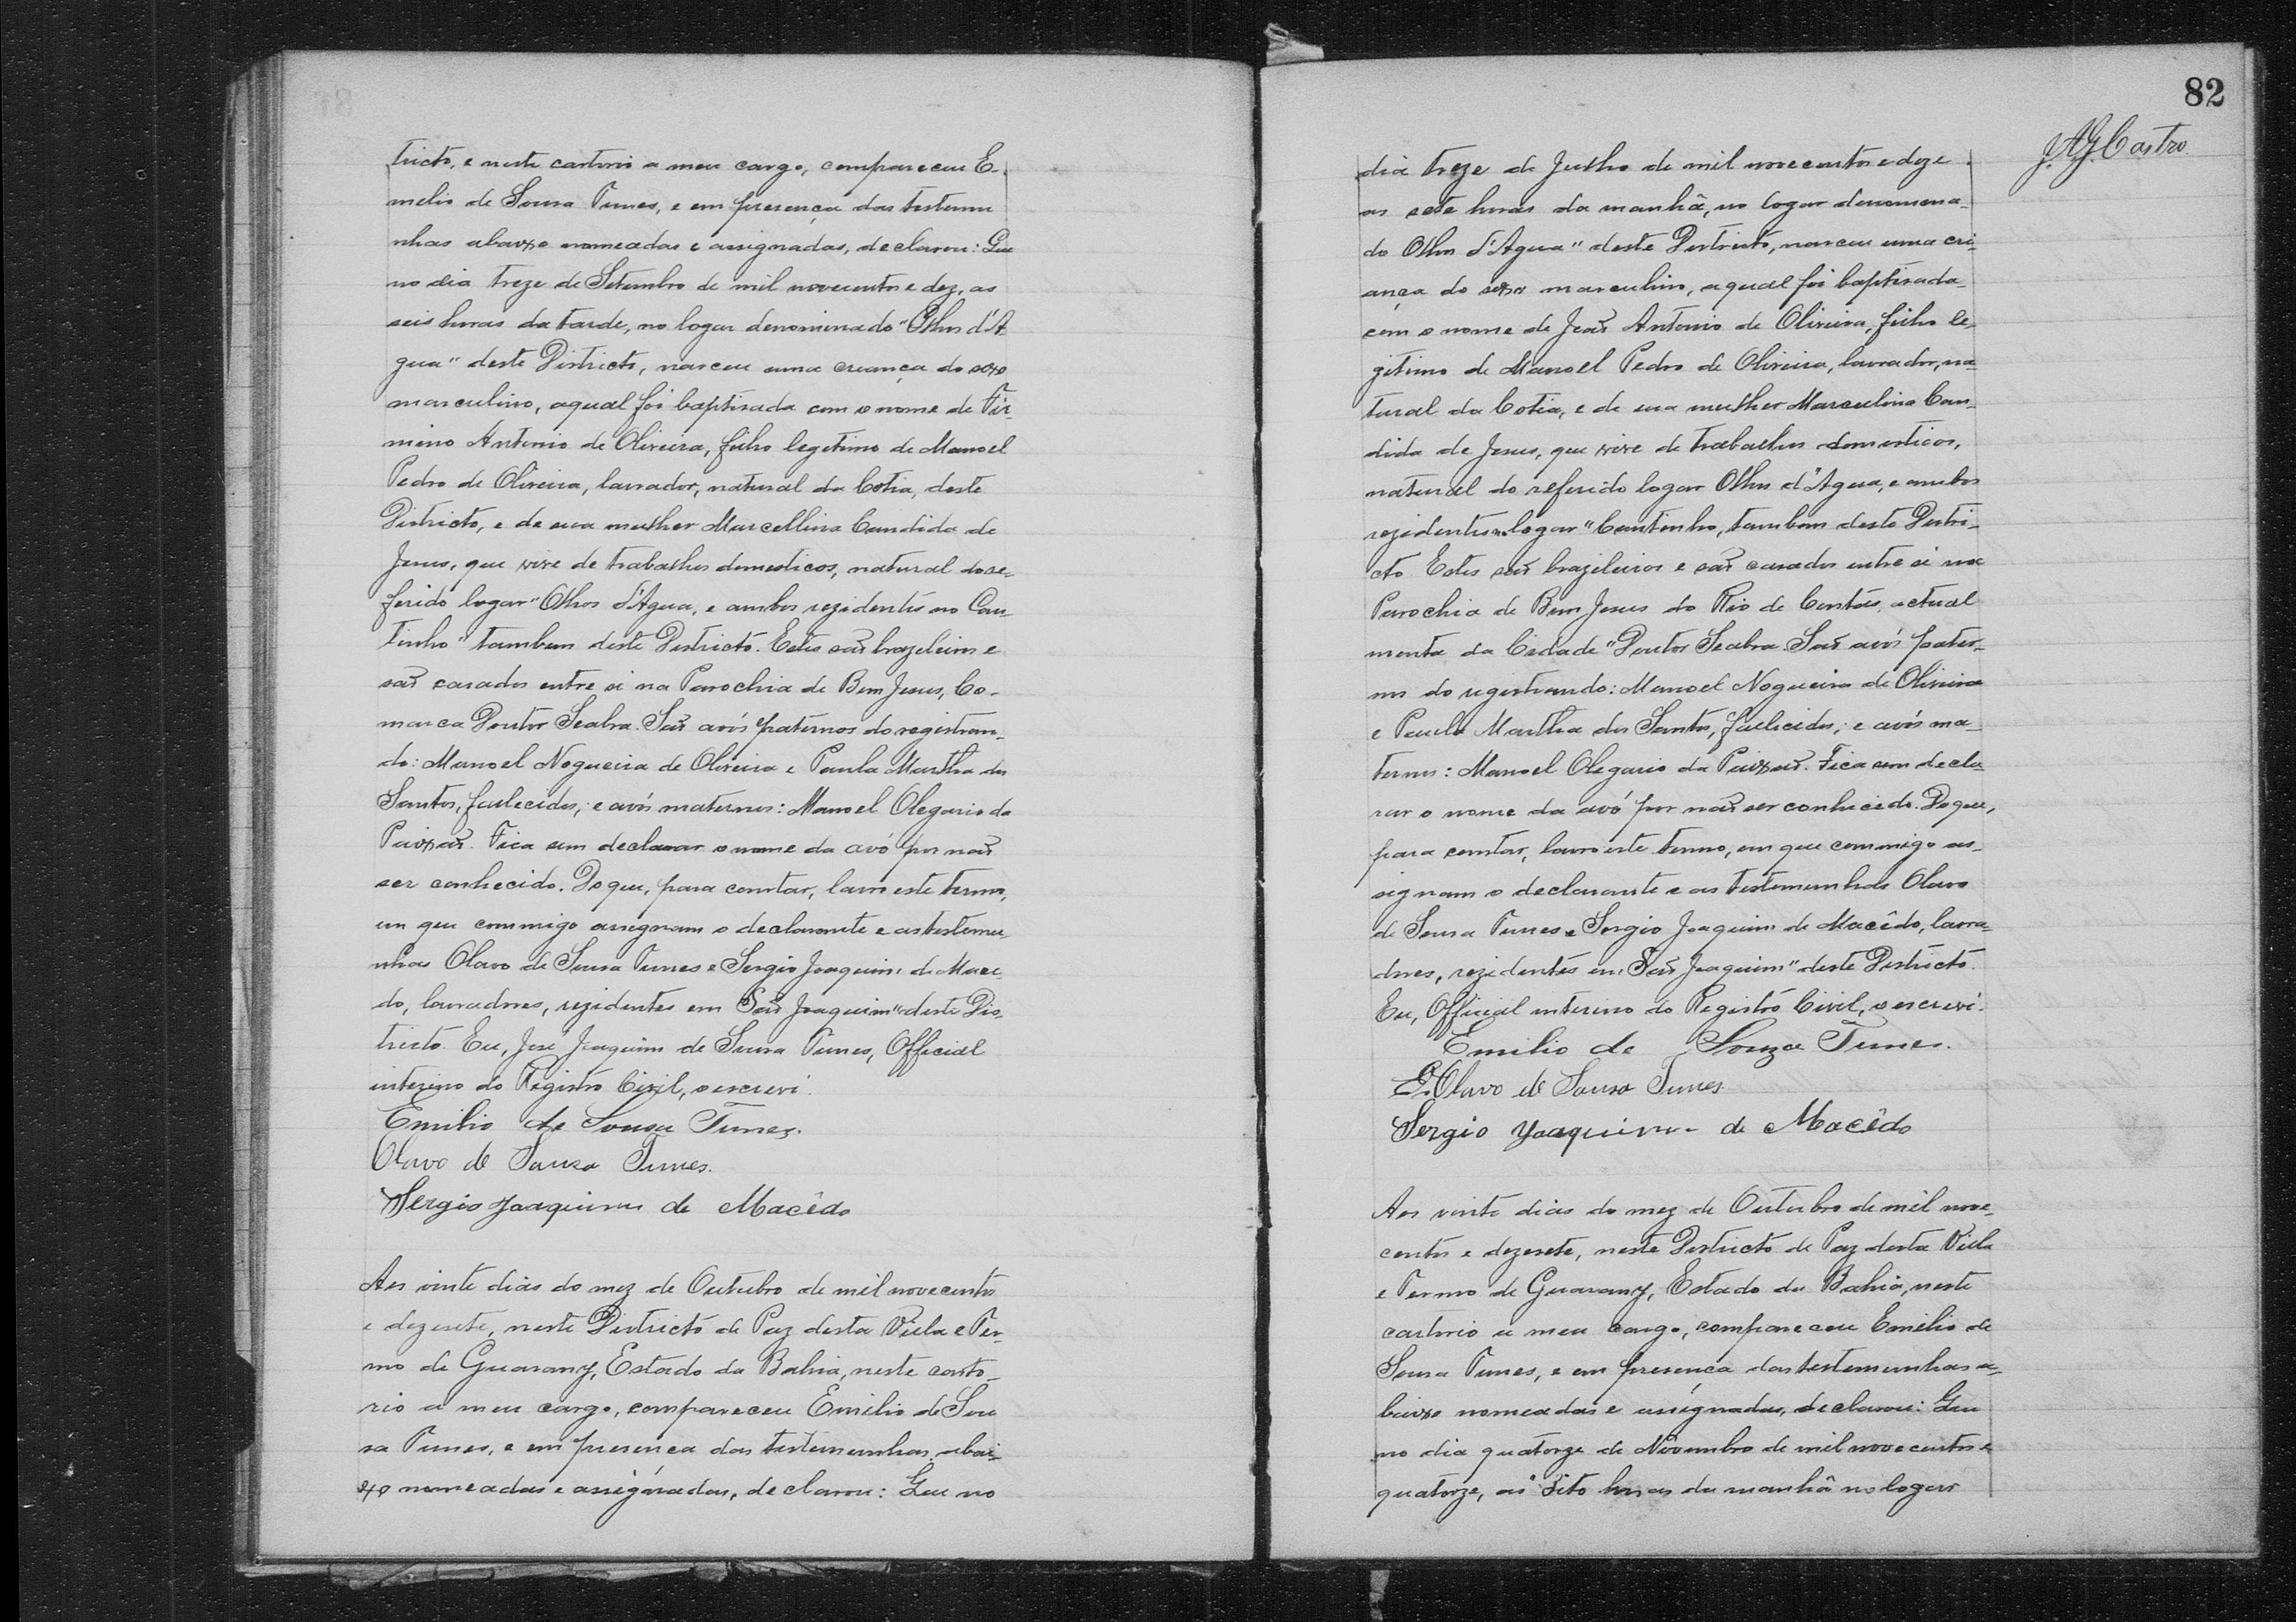 tricto, e neste cartorio a meu cargo, compareceu E-
melio de Sousa Tunes, e em presença das testemu
nhas abaixo nomeadas e assignadas, declarou: Que
no dia treze de Setembro de mil novecentos e dez, as
seis horas da tarde, no logar denominado "Olhos d'A
gua" deste Districto, nasceu uma creança do sexo
masculino, aqual foi baptisada com o nome de Fir-
mino Antonio de Oliveira, filho legitimo de Manoel
Pedro de Oliveira, lavrador, natural da Cotia, deste
Districto, e de sua mulher Marcellina Candida de
Jesus, que vive de trabalhos domesticos, natural do re-
ferido logar "Olhos d'Agua, e ambos rezidentes no Can-
tinho" tambem deste Districto. Estes são brazileiros e
são casados entre si na Parochia de Bom Jesus, Co-
marca Doutor Seabra. São avós paternos do registran-
do: Manoel Nogueira de Oliveira e Paula Martha dos
Santos, fallecidos; e avós maternos: Manoel Olegario da
Paixão. Fica sem declarar o nome da avó por não
ser conhecido. Do que, para constar, lavro este termo,
em que commigo assignam o declarante e as testemu-
nhas Olavo de Sousa Tunes e Sergio Joaquim de Mace-
do, lavradores, rezidentes em "São Joaquim" deste Dis-
tricto. Eu, José Joaquim de Sousa Tunes, Official
interino do Registro Civil, o escrevi.
Emilio de Sousa Tunes.
Olavo de Sousa Tunes.
Sergio Joaquim de Macêdo
Aos vinte dias do mez de Outubro de mil novecentos
e dezesete, neste Districto de Paz desta Villa e Ter-
mo de Guarany, Estado da Bahia, neste carto-
rio a meu cargo, compareceu Emilio de Sou
sa Tunes, e em presença das testemunhas abai-
xo nomeadas e assignadas, declarou: Que no
82
J. A. G. Castro.
dia treze de Julho de mil novecentos e doze
as sete horas da manhã, no logar denomena-
do Olhos d'Agua" deste Districto, nasceu uma cri-
ança do sexo masculino, aqual foi baptisada
com o nome de João Antonio de Oliveira, filho le-
gitimo de Manoel Pedro de Oliveira, lavrador, na-
tural da Cotia, e de sua mulher Marculina Can-
dida de Jesus, que vive de trabalhos domesticos,
natural do referido logar Olhos d'Agua, e ambos
rezidentes no logar "Cantinho, tambem deste Distri-
cto. Estes são brazileiros e são casados entre si na
Parochia de Bom Jesus do Rio de Contas, actual
mente da Cidade "Doutor Seabra. São avós pater-
nos do registrando: Manoel Nogueira de Oliveira
e Paula Martha dos Santos, fallecidos; e avós ma-
ternos: Manoel Olegario da Paixão. Fica sem decla-
rar o nome da avó por não ser conhecido. Do que,
para constar, lavro este termo, em que commigo as-
signam o declarante e as testemunhas Olavo
de Sousa Tunes e Sergio Joaquim de Macêdo, lavra-
dores, rezidentes em "São Joaquim" deste Districto.
Eu, Official interino do Registro Civil, o escrevi.
Emilio de Souza Tunes.
Olavo de Sousa Tunes
Sergio Joaquim de Macêdo
Aos vinte dias do mez de Outubro de mil nove-
centos e dezesete, neste Districto de Paz desta Villa
e Termo de Guarany, Estado da Bahia, neste
cartorio a meu cargo, compareceu Emilio de
Sousa Tunes, e em presença das testemunhas a-
baixo nomeadas e assignadas, declarou: Que
no dia quatorze de Novembro de mil novecentos e
quatorze, as oito horas da manhã no logar